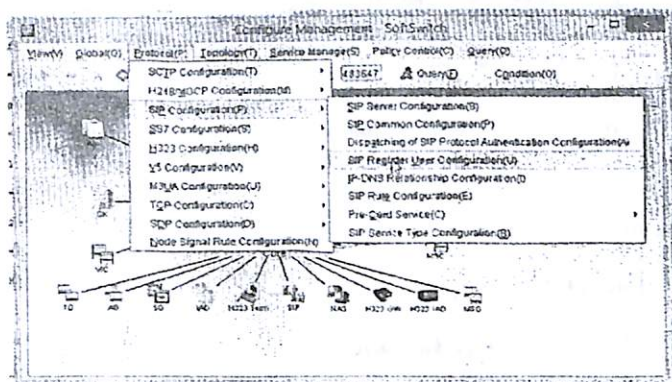 Configure Management - SoftSwitch
View(V) Global(G) Protocol(P) Topology(T) Service Manage(S) Policy Control(C) Query(Q)
483647 Query(Z) Condition(O)
SCTP Configuration(T)
H248/MGCP Configuration(M)
SIP Configuration(P)
SS7 Configuration(S)
H323 Configuration(H)
V5 Configuration(V)
M3UA Configuration(U)
TCP Configuration(C)
SDP Configuration(D)
Node Signal Rule Configuration(N)
SIP Server Configuration(S)
SIP Common Configuration(P)
Dispatching of SIP Protocol Authentication Configuration(A
SIP Register User Configuration(U)
IP-DNS Relationship Configuration(I)
SIP Rule Configuration(E)
Pre-Card Service(C)
SIP Service Type Configuration(B)
TG AG SG IAD H323 Term SIP NAS H323 GW H323 IAD MSG